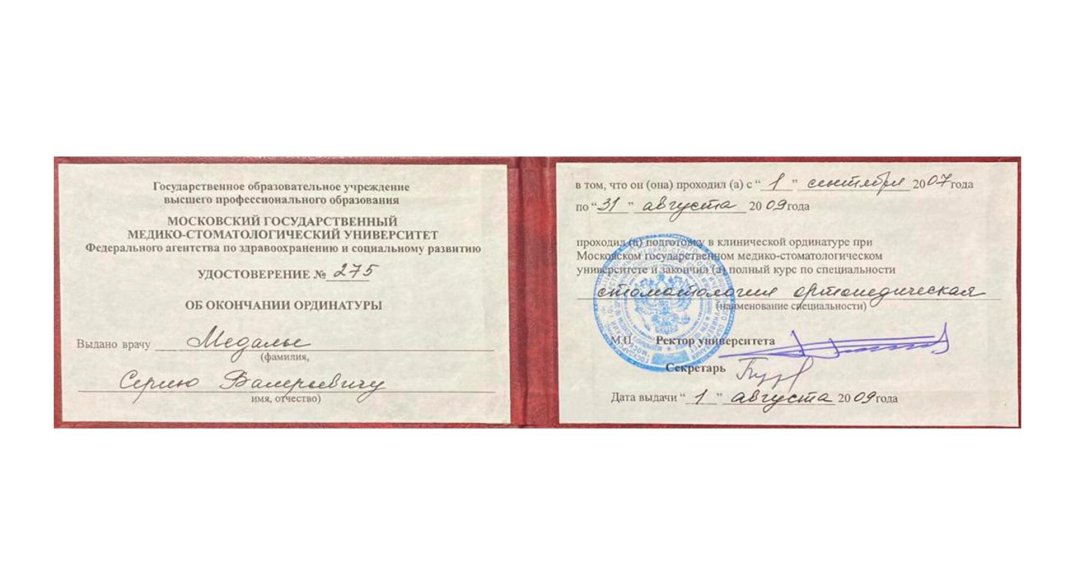 Государственное образовательное учреждение
высшего профессионального образования
МОСКОВСКИЙ ГОСУДАРСТВЕННЫЙ
МЕДИКО-СТОМАТОЛОГИЧЕСКИЙ УНИВЕРСИТЕТ
Федерального агентства по здравоохранению и социальному развитию
УДОСТОВЕРЕНИЕ № 275
ОБ ОКОНЧАНИИ ОРДИНАТУРЫ
Выдано врачу Медалье
(фамилия,
Сергею Валерьевичу
имя, отчество)
в том, что он (она) проходил (а) с “ 1 ” сентября 2007 года
по “ 31 ” августа 2009 года
проходил (а) подготовку в клинической ординатуре при
Московском государственном медико-стоматологическом
университете и закончил (а) полный курс по специальности
стоматология ортопедическая
(наименование специальности)
М.П. Ректор университета
Секретарь
Дата выдачи “ 1 ” августа 2009 года